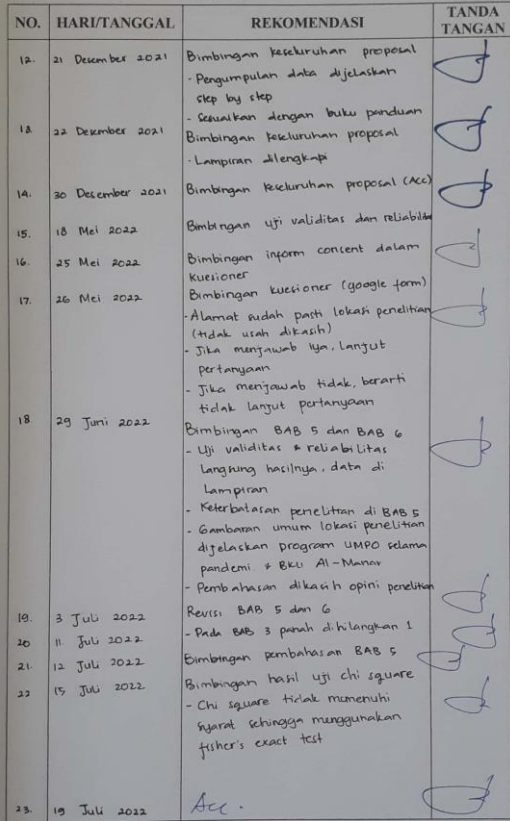 NO. HARI/TANGGAL REKOMENDASI TANDA TANGAN
12. 21 Desember 2021 Bimbingan keseluruhan proposal
- Pengumpulan data dijelaskan
step by step
- Sesuaikan dengan buku panduan
13. 22 Desember 2021 Bimbingan keseluruhan proposal
- Lampiran dilengkapi
14. 30 Desember 2021 Bimbingan keseluruhan proposal (Acc)
15. 18 Mei 2022 Bimbingan uji validitas dan reliabilitas
16. 25 Mei 2022 Bimbingan inform consent dalam
kuesioner
17. 26 Mei 2022 Bimbingan kuesioner (google form)
- Alamat sudah pasti lokasi penelitian
(tidak usah dikasih)
- Jika menjawab iya, lanjut
pertanyaan
- Jika menjawab tidak, berarti
tidak lanjut pertanyaan
18 29 Juni 2022 Bimbingan BAB 5 dan BAB 6
- Uji validitas & reliabilitas
langsung hasilnya, data di
Lampiran
- Keterbatasan penelitian di BAB 5
- Gambaran umum lokasi penelitian
dijelaskan program UMPO selama
pandemi & BKLU Al-Manar
- Pembahasan dikasih opini penelitian
19. 3 Juli 2022 Revisi BAB 5 dan 6
20 11 Juli 2022 - Pada BAB 3 panah dihilangkan 1
21. 12 Juli 2022 Bimbingan pembahasan BAB 5
22 15 Juli 2022 Bimbingan hasil uji chi square
- Chi square tidak memenuhi
syarat sehingga menggunakan
fisher's exact test
23. 19 Juli 2022 Acc.